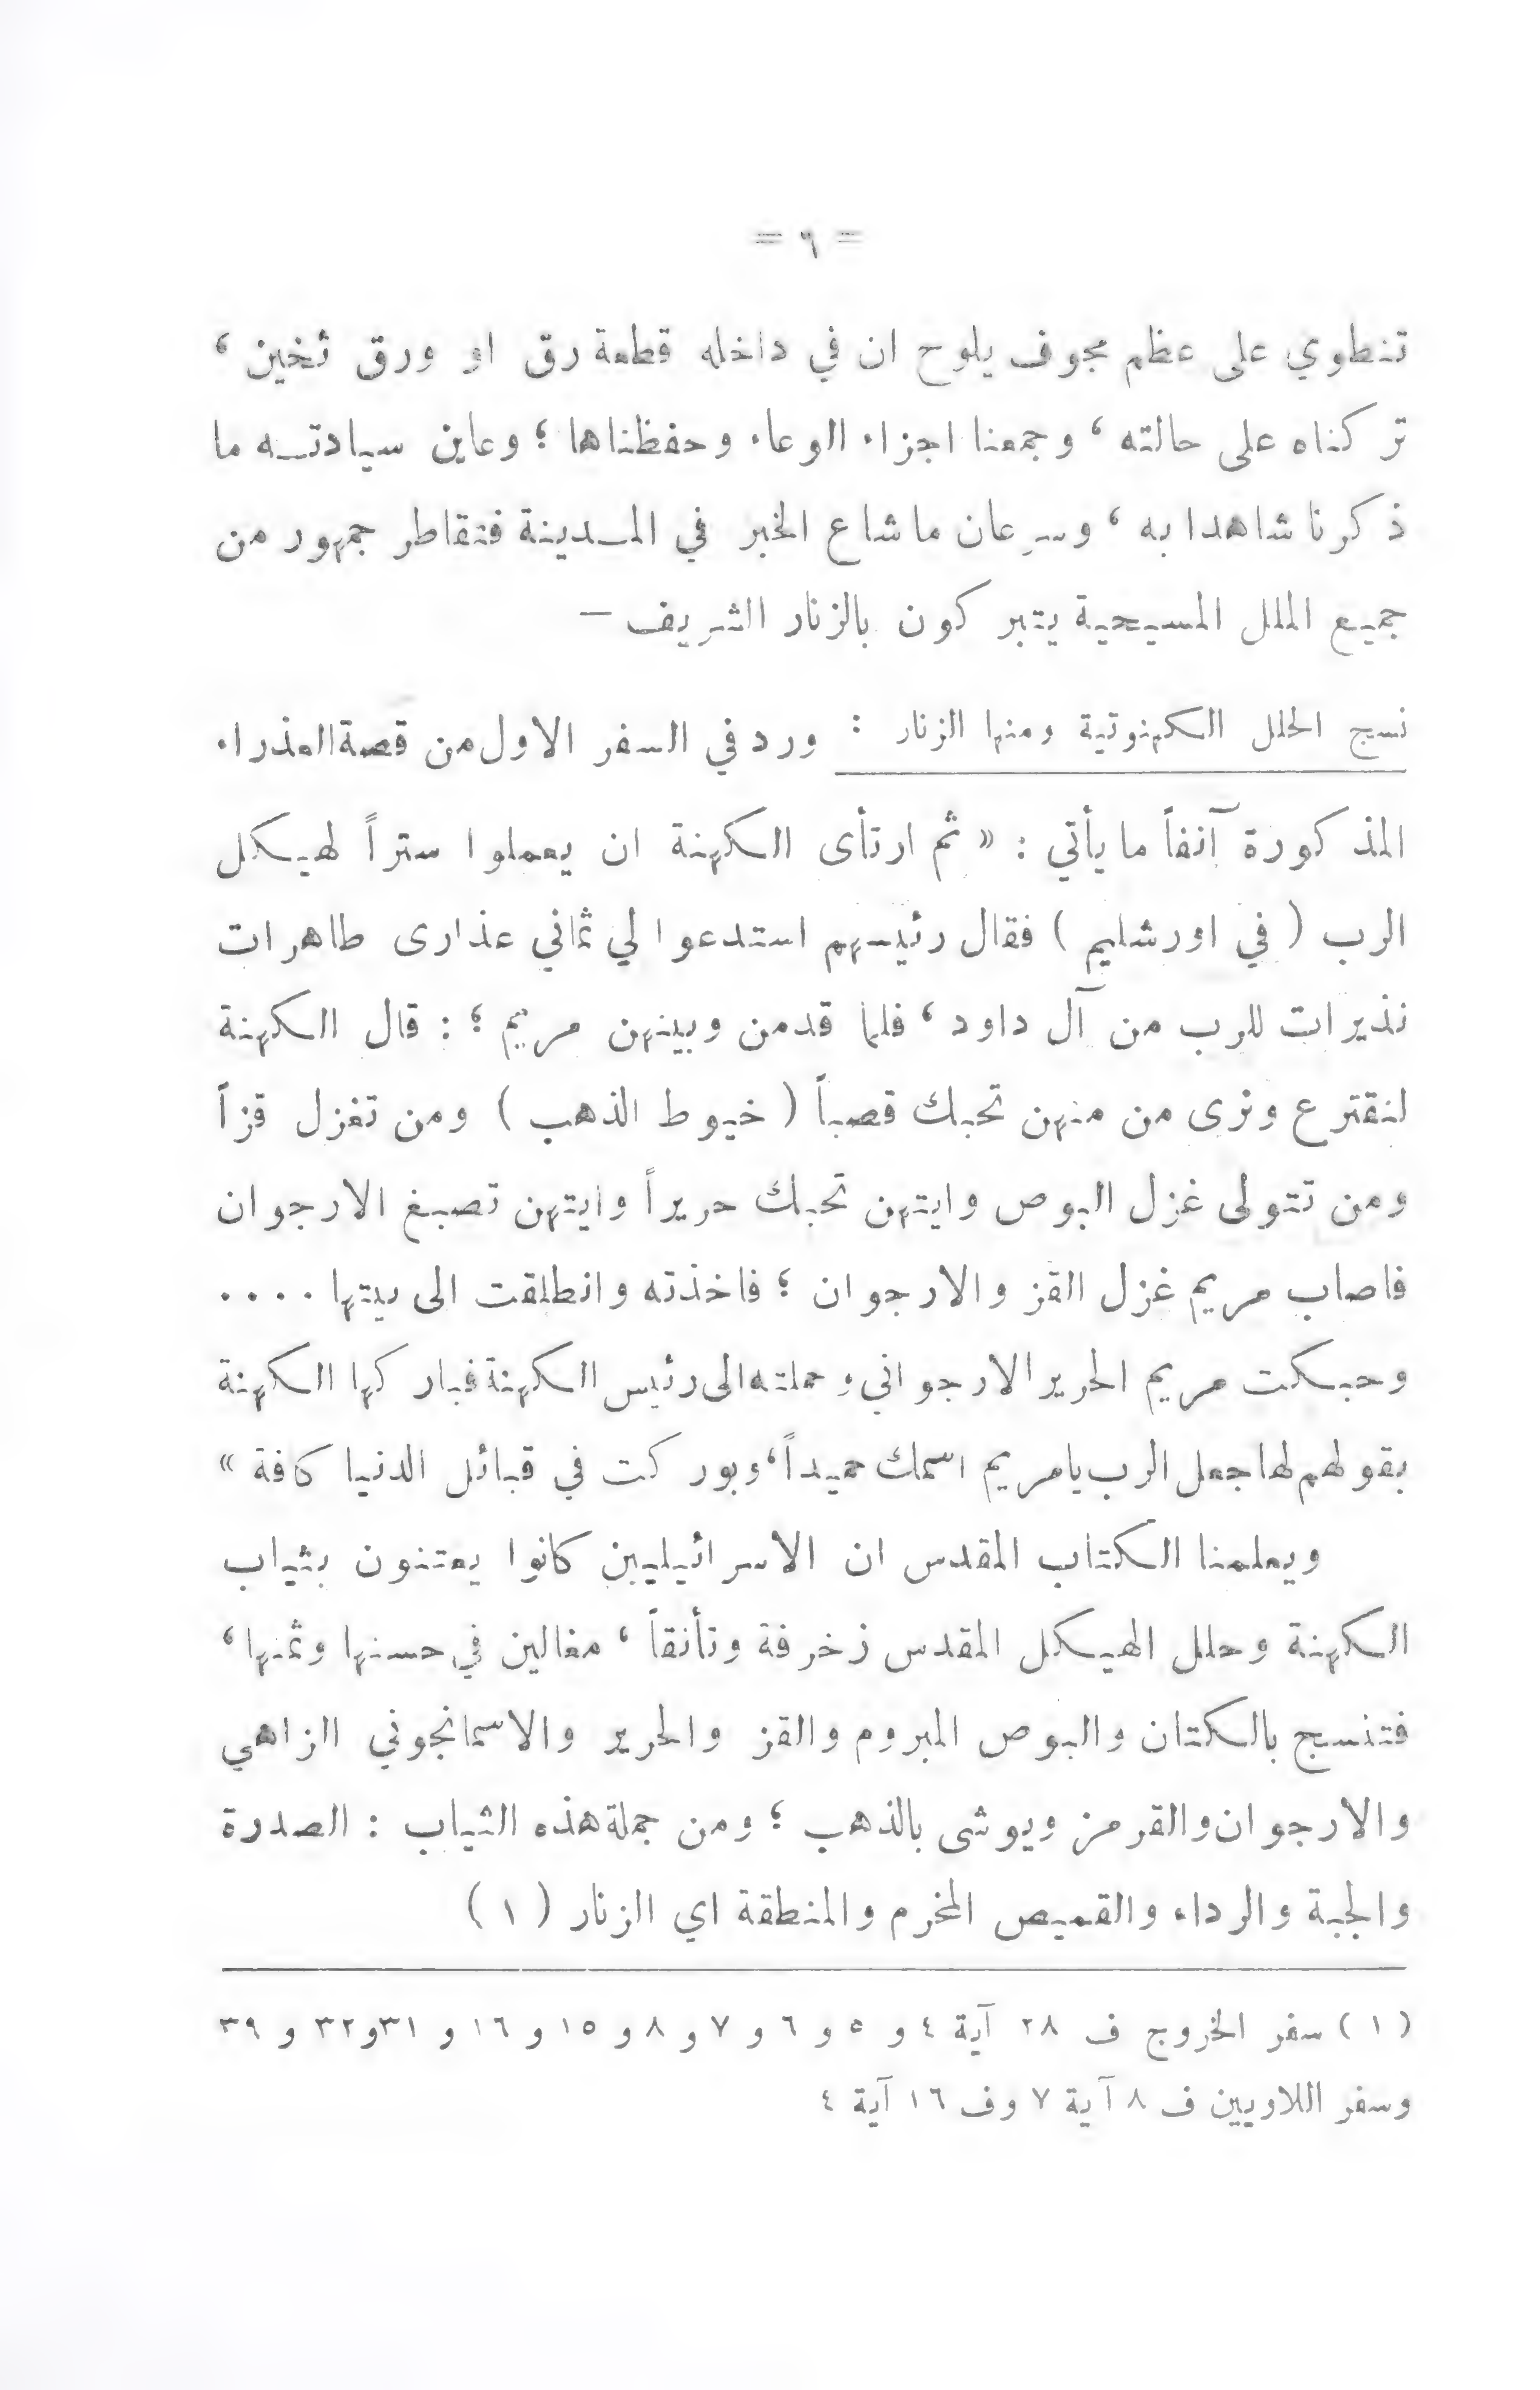 = ٦ =
تنطوي على عظم مجوف يلوح ان في داخله قطعة رق او ورق ثخين ،
تركناه على حالته ، وجمعنا اجزاء الوعاء وحفظناها ؛ وعاين سيادتـه ما
ذكرنا شاهدا به ، وسرعان ما شاع الخبر في المـدينة فتقاطر جمهور من
جميع الملل المسيحية يتبركون بالزنار الشريف —
نسج الحلل الكهنوتية ومنها الزنار : ورد في السفر الاول من قصة العذراء
المذكورة آنفاً ما يأتي : « ثم ارتأى الكهنة ان يعملوا ستراً لهيكل
الرب ( في اورشليم ) فقال رئيسهم استدعوا لي ثماني عذارى طاهرات
نذيرات للرب من آل داود ، فلما قدمن وبينهن مريم ؛ : قال الكهنة
لنقترع ونرى من منهن تحبك قصباً ( خيوط الذهب ) ومن تغزل قزاً
ومن تتولى غزل البوص وايتهن تحبك حريراً وايتهن تصبغ الارجوان
فاصاب مريم غزل القز والارجوان ؛ فاخذته وانطلقت الى بيتها ....
وحبكت مريم الحرير الارجواني وحملته الى رئيس الكهنة فباركها الكهنة
بقولهم لها جعل الرب يا مريم اسمك حميداً، وبوركت في قبائل الدنيا كافة »
ويعلمنا الكتاب المقدس ان الاسرائيليين كانوا يعتنون بثياب
الكهنة وحلل الهيكل المقدس زخرفة وتأنقاً ، مغالين في حسنها وثمنها ،
فتنسج بالكتان والبوص المبروم والقز والحرير والاسمانجوني الزاهي
والارجوان والقرمز ويوشى بالذهب ؛ ومن جملة هذه الثياب : الصدرة
والجبة والرداء والقميص المخرم والمنطقة اي الزنار ( ١ )
( ١ ) سفر الخروج ف ٢٨ آية ٤ و ٥ و ٦ و ٧ و ٨ و ١٥ و ١٦ و ٣١ و٣٢ و ٣٩
وسفر اللاويين ف ٨ آية ٧ وف ١٦ آية ٤